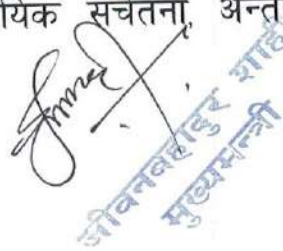 यिक सचेतना, अन्त
जीवनबहादुर शाही
मुख्यमन्त्री